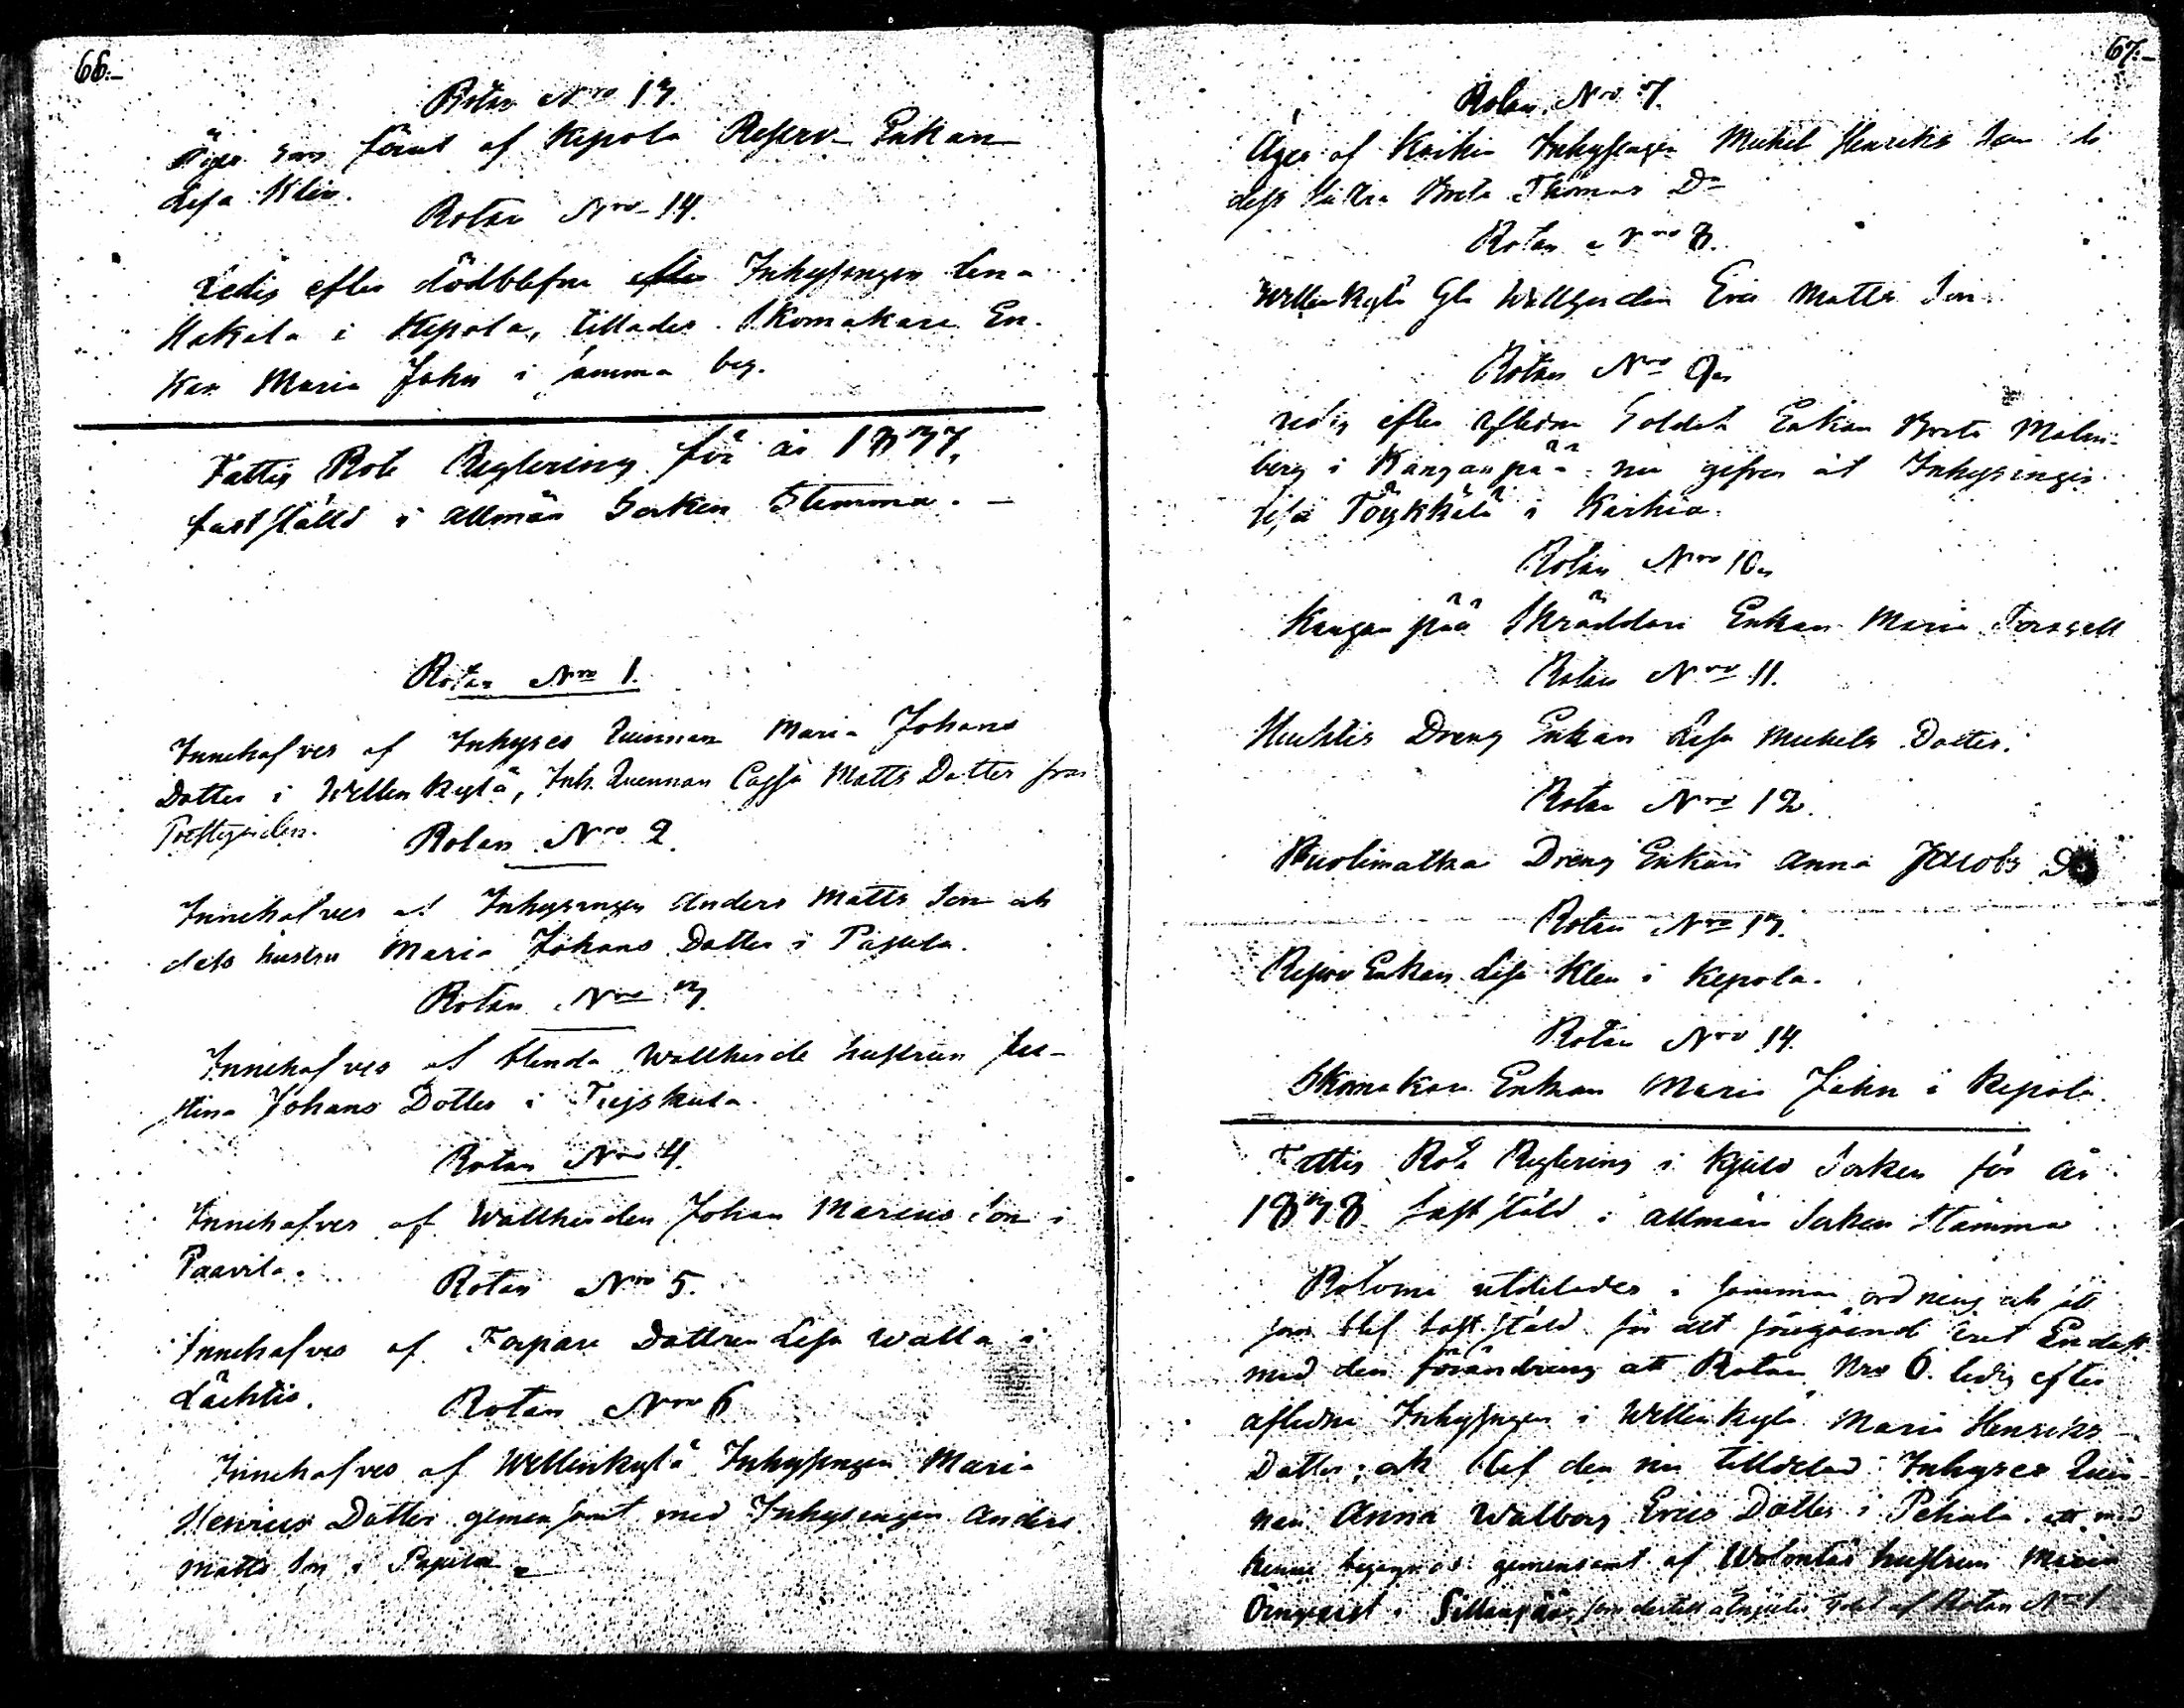 66.
Rotan Nro 13.
Äges som förut af Kepola Reserv Enkan
Lisa Klen.
Rotan Nro 14.
Ledig efter dödblefne efter Inhysingen Lena
Hakala i Kepola, tillades Skomakare En-
kan Maria Jahn i samma by.
Fattig Rote Reglering för år 1837,
fastställd i allmän Socken Stemma. —
Rotan Nro 1.
Innehafves af Inhyses Quinnan Maria Johans
Dotter i Wellenkylä, Inh. Quennan Cajsa Matts Dotter från
Prestgården.
Rotan Nro 2.
Innehafves af Inhysingen Anders Matts Son och
dess hustru Maria Johans Dotter i Papula.
Rotan Nro 3.
Innehafves af blinda Wallherde hustrun Ju-
stina Johans Dotter i Tujskula.
Rotan Nro 4.
Innehafves af Wallherden Johan Marcus Son i
Paavila.
Rotan Nro 5.
Innehafves af Torpare Dottren Lisa Walla i
Lächtis.
Rotan Nro 6
Innehafves af Wellenkylä Inhysingen Maria
Henrics Dotter gemensamt med Inhysingen Anders
Matts Son i Papula.
67.
Rotan Nro 7.
Äges af Karhia Inhysingen Michel Henriks Son &
dess hustru Brita Thomas Dr
Rotan Nro 8.
Wellenkylä Gla Wallherden Eric Matts Son
Rotan Nro 9.
Ledig efter aflidne Soldat Enkan Brita Malm-
berg i Kanganpää nu gifven åt Inhysingen
Lisa Töykkälä i Karhia.
Rotan Nro 10.
Kanganpää Skräddare Enkan Maria Forssell
Rotan Nro 11.
Huhtis Dreng Enkan Lisa Michels Dotter.
Rotan Nro 12.
Puolimatka Dreng Enkan Anna Jacobs D
Rotan Nro 13.
Reserv Enkan Lisa Klen i Kepola.
Rotan Nro 14.
Skomakare Enkan Maria Jahn i Kepola.
Fattig Rote Reglering i Kjulo Socken för år
1838 fastställd i allmän Socken Stämma
Rotorne utdelades i samma ordning och sätt
som blef fastställd för det föregående året Endast
med den förändring att Rotan Nro 6. ledig efter
aflidne Inhysingen i Wellenkylä Maria Henriks
Dotter; och blef den nu tilldelad Inhyses Quin-
nan Anna Walborg Erics Dotter i Pekala. att med
henne begagnas gemensamt af Wolontär hustrun Maria
Örnqvist i Sillanpää, som dertill åtnjuter del af Rotan Nro 1